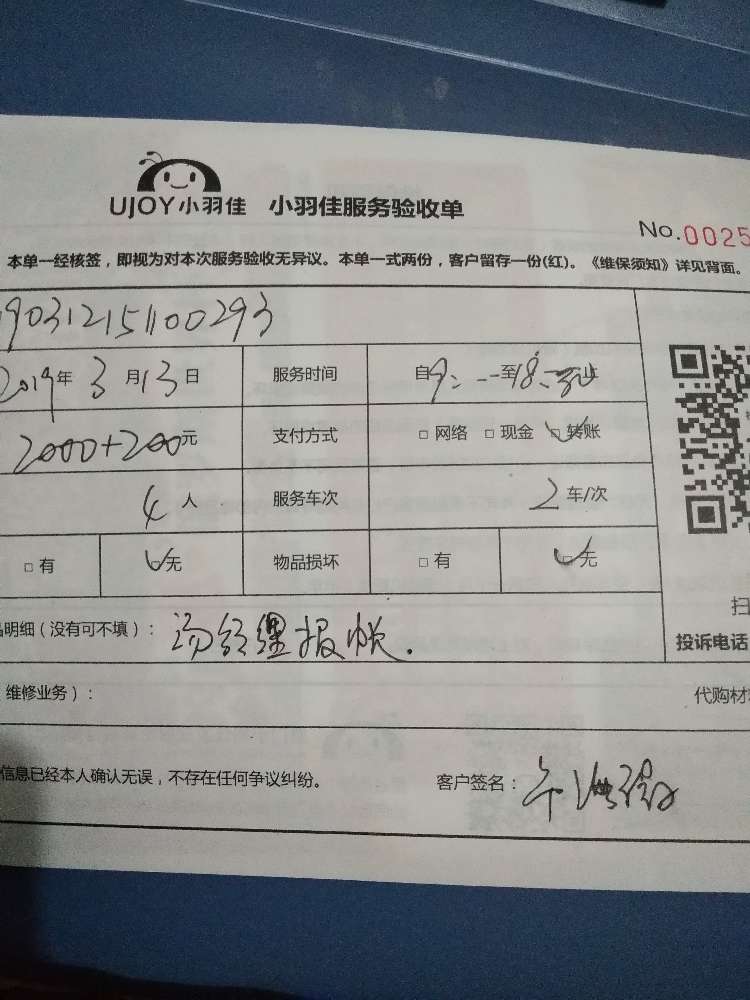 UJOY小羽佳 小羽佳服务验收单
No.0025
本单一经核签，即视为对本次服务验收无异议。本单一式两份，客户留存一份(红)。《维保须知》详见背面。
90312151100293
2019年3月13日 服务时间 自9: 至18: 止
2000+200元 支付方式 □ 网络 □ 现金 □ 转账
4人 服务车次 2车/次
□ 有 □ 无 物品损坏 □ 有 □ 无
明细（没有可不填）： 汤经理报帐.
扫
投诉电话
维修业务）：
代购材
信息已经本人确认无误，不存在任何争议纠纷。 客户签名：